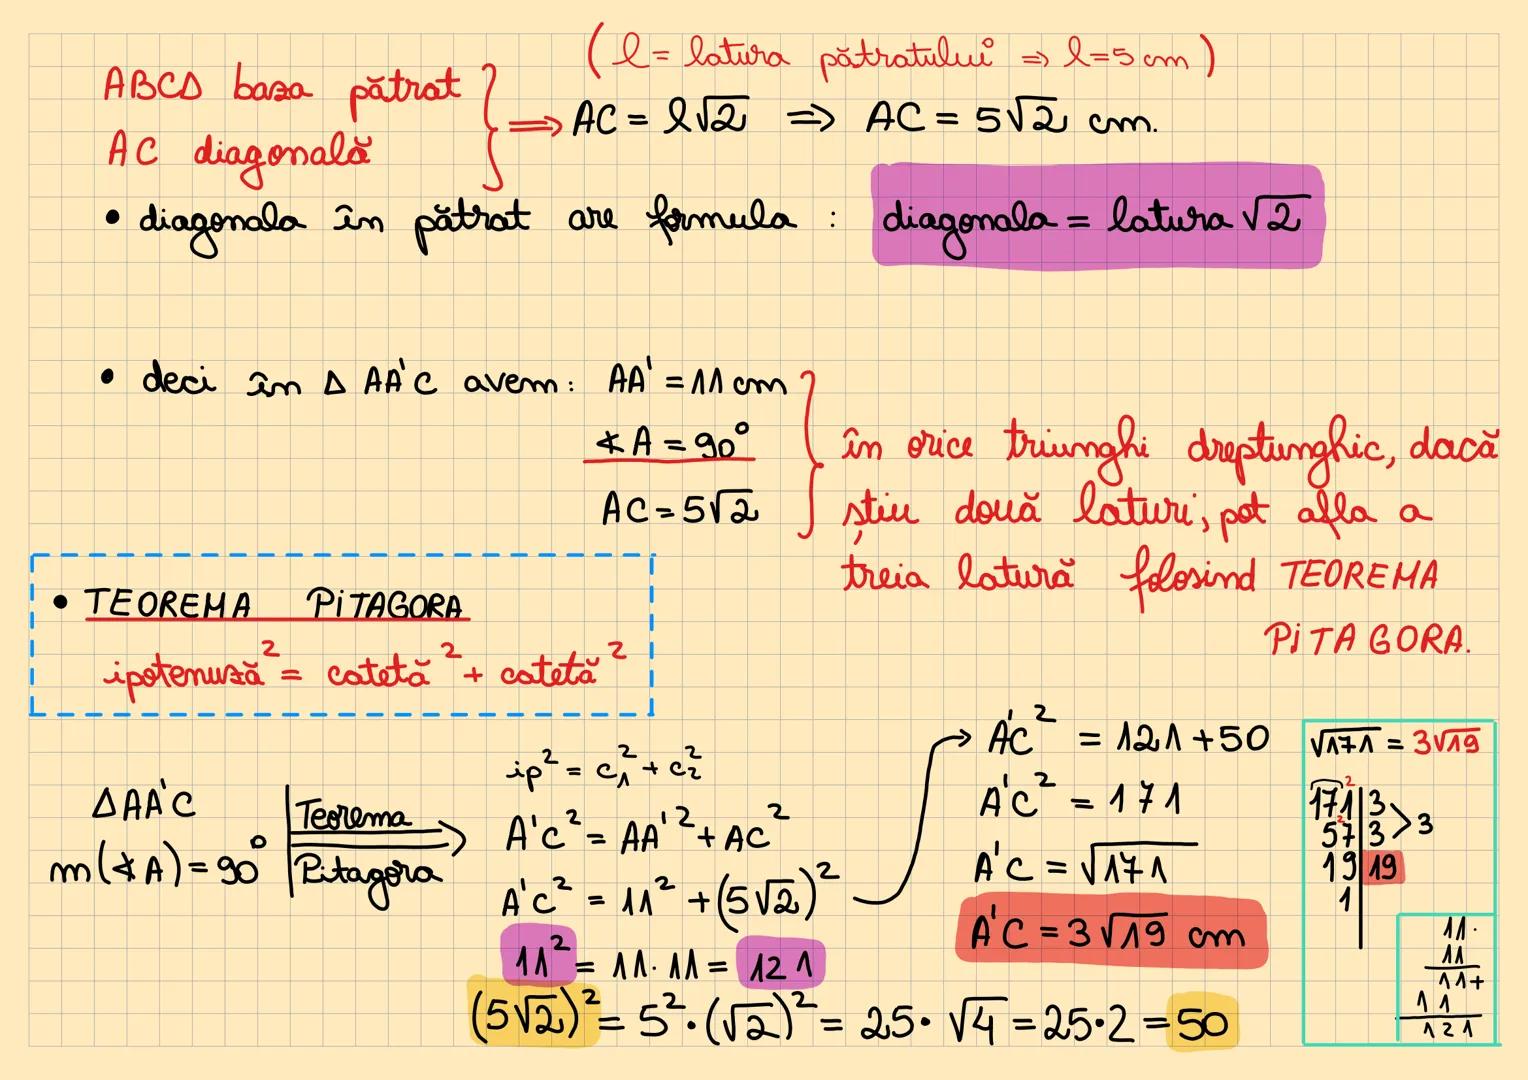 ( l = latura pătratului => l=5 cm )
ABCD baza pătrat
AC diagonală
=> AC = l√2 => AC = 5√2 cm.
• diagonala în pătrat are formula : diagonala = latura √2
• deci în Δ AA'C avem: AA' = 11 cm
∢A = 90°
AC = 5√2
în orice triunghi dreptunghic, dacă
știu două laturi, pot afla a
treia latură folosind TEOREMA
PiTAGORA.
• TEOREMA PiTAGORA
ipotenuză² = catetă² + catetă²
ΔAA'C
m(∢A) = 90°
Teorema
Pitagora
ip² = c₁² + c₂²
A'C² = AA'² + AC²
A'C² = 11² + (5√2)²
11² = 11·11 = 121
(5√2)² = 5²·(√2)² = 25·√4 = 25·2 = 50
A'C² = 121+50
A'C² = 171
A'C = √171
A'C = 3√19 cm
√171 = 3√19
171 | 3
57 | 3 > 3
19 | 19
1
11·
11
11+
11
121